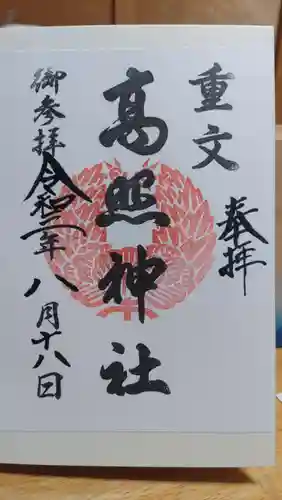 重文
奉拝
高照神社
御参拝
令和二年八月十八日